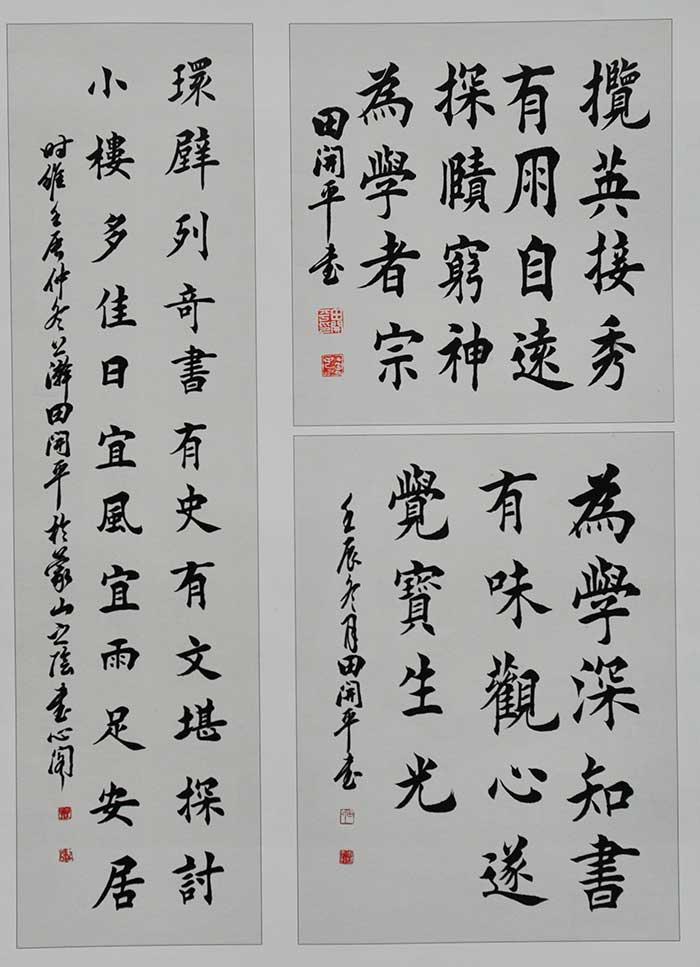 攬英接秀
有用自遠
探賾窮神
為學者宗
田開平書
為學深知書
有味觀心遂
覺寶生光
壬辰冬月田開平書
環壁列奇書有史有文堪探討
小樓多佳日宜風宜雨足安居
时維壬辰仲冬上澣田開平於蒙山之陰書心閣